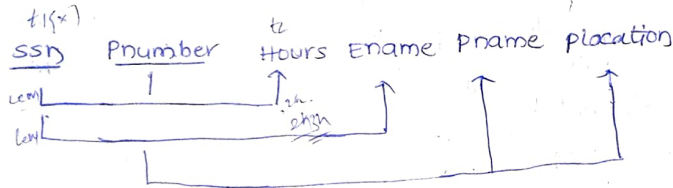 t1(x) t2
SSN Pnumber Hours Ename Pname placation
2h.
2h3h